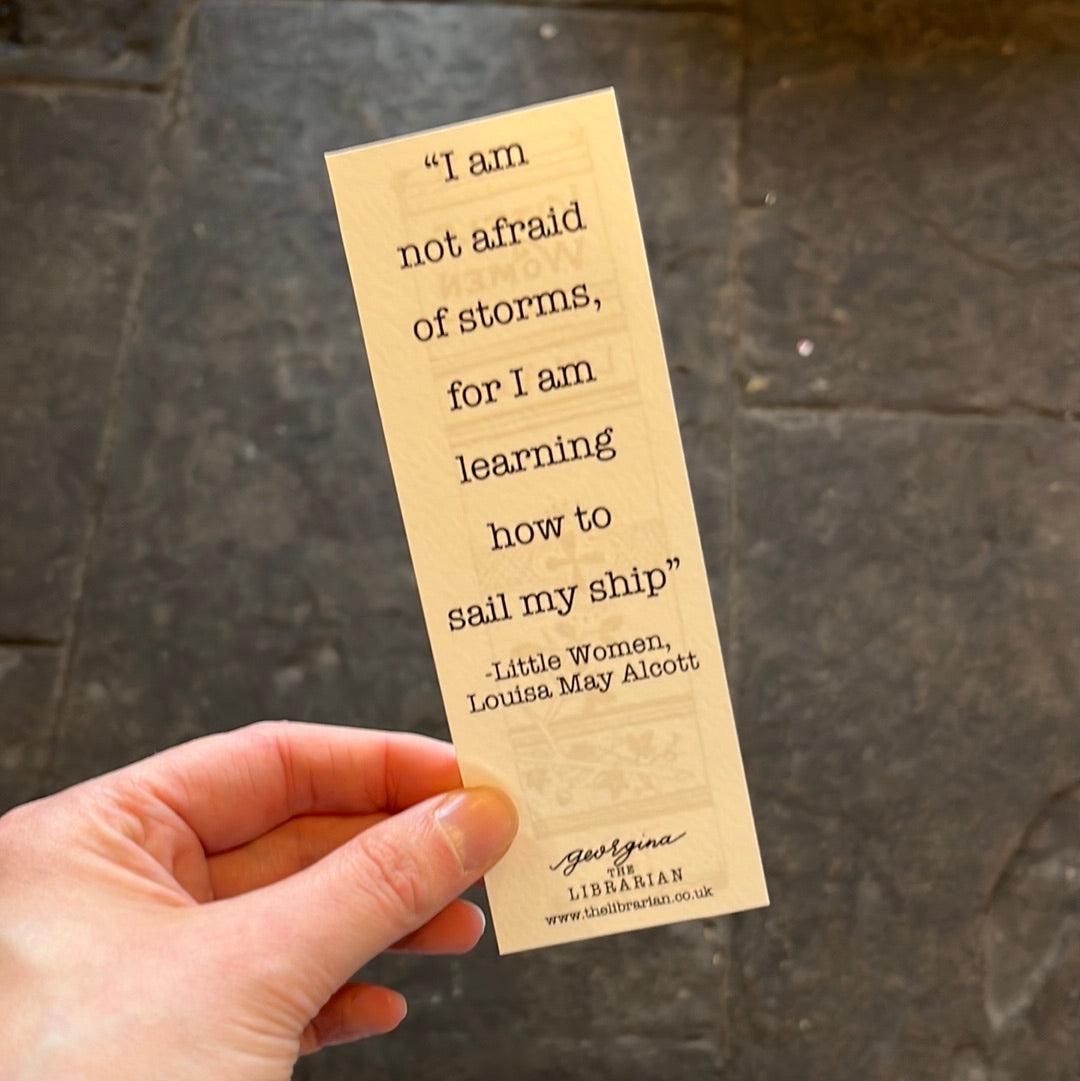 “I am
not afraid
of storms,
for I am
learning
how to
sail my ship”
-Little Women,
Louisa May Alcott
georgina
THE
LIBRARIAN
www.thelibrarian.co.uk